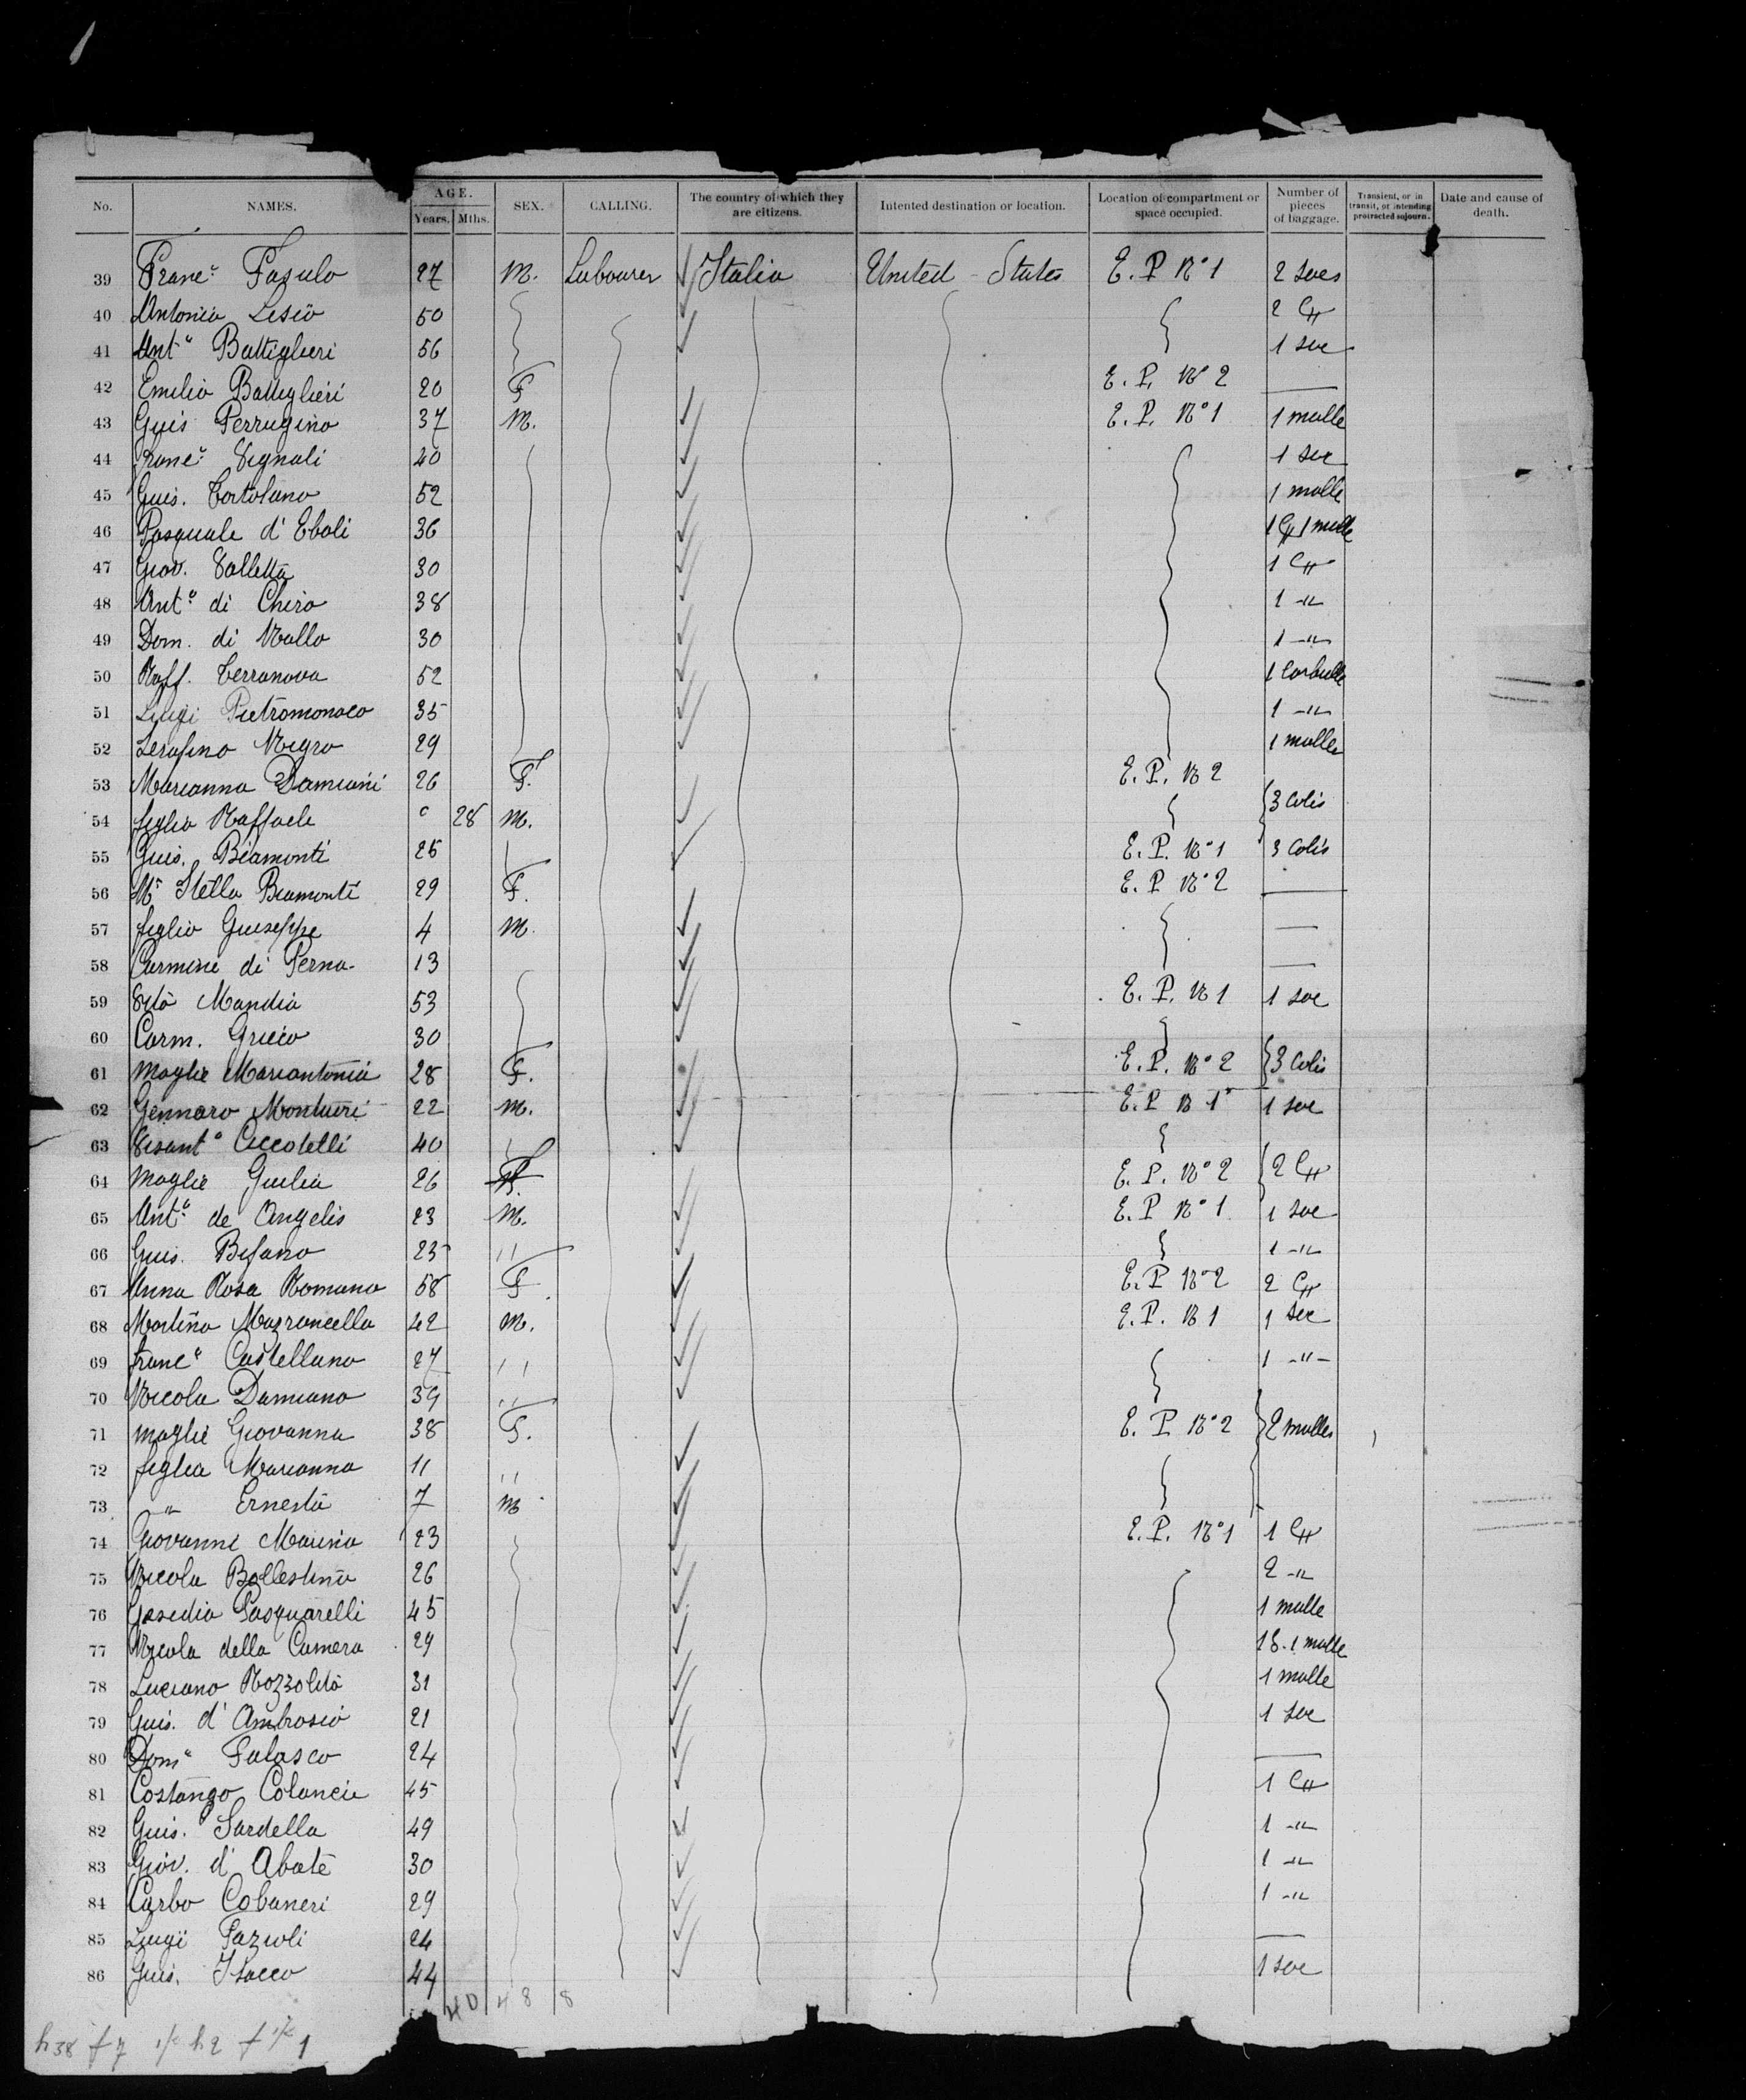 No. NAMES. AGE. Years. Mths. SEX. CALLING. The country of which they are citizens. Intented destination or location. Location of compartment or space occupied. Number of pieces of baggage. Transient, or in transit, or intending protracted sojourn. Date and cause of death.
39 Franc: Fasulo 27 M. Labourer Italia United States E. P. No 1 2 sacs
40 Antonio 50 2
41 Anto Battiglieri 56 1 sac
42 Emilia Battiglieri 20 F E. P. No 2 —
43 Guis Perrugino 37 M. E. P. No 1 1 malle
44 Franc: Vignali 40 1 sac
45 Guis. Tortolano 52 1 malle
46 Pasquale d'Eboli 36 1 malle
47 Giov. Valletta 30 1
48 Anto di Chiro 38 1 -"-
49 Dom. di Nallo 30 1 -"-
50 Raff. Terranova 52 1 Corbelle
51 Luigi Pietromonaco 35 1 -"-
52 Serafino Negro 29 1 malle
53 Marianna Damiani 26 F. E. P. No 2
54 figlio Raffaele 0 28 M. 3 Colis
55 Guis. Biamonti 25 E. P. No 1 3 Colis
56 Ma Stella Biamonti 29 F. E. P. No 2 —
57 figlio Guiseppe 4 M. —
58 Carmine di Perna 13 —
59 Vito Mandia 53 E. P. No 1 1 sac
60 Carm. Grieco 30
61 Moglie Mariantonia 28 F. E. P. No 2 3 Colis
62 Gennaro Montuori 22 M. E. P. No 1 1 sac
63 40
64 Moglie Giulia 26 F. E. P. No 2 2
65 Anto de Angelis 23 M. E. P. No 1 1 sac
66 Guis. Bifano 25 " 1 -"-
67 Anna Rosa Romano 58 F. E. P. No 2 2
68 Martino Mazzancella 42 M. E. P. No 1 1 Sac
69 Franco Castellano 27 " 1 -"-
70 Nicola Damiano 39 "
71 moglie Giovanna 38 F. E. P. No 2 2 malles
72 figlia Marianna 11 "
73 " Ernesto 7 M
74 Giovanni Marino 23 E. P. No 1 1
75 Nicola Ballestino 26 2 -"-
76 Pasquarelli 45 1 malle
77 Nicola della Camera 29 1 S. 1 malle
78 Luciano Rozzolito 31 1 malle
79 Guis. d'Ambrosio 21 1 sac
80 Domo Falasco 24 —
81 Costanzo Colancia 45 1
82 Guis. Sardella 49 1 -"-
83 Giov. d'Abate 30 1 -"-
84 Carlo Cobaneri 29 1 -"-
85 Luigi Fazioli 24 —
86 Guis. Isacco 44 1 sac
h 38 f 7 h 2 f 1